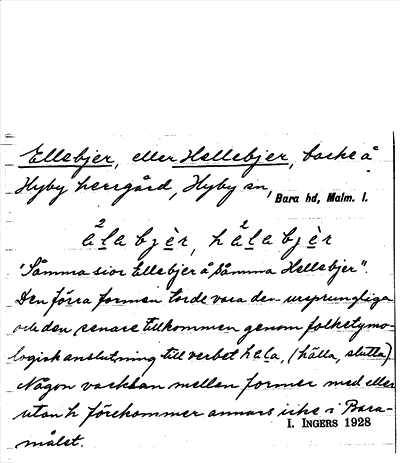 Ellebjer, eller Hellebjer, backe å
Hyby herrgård, Hyby sn, Bara hd, Malm. l.
ä²labjèr, hä²labjèr
"Somma sior Ellebjer å somma Hellebjer".
Den förra formen torde vara den ursprungliga
och den senare tillkommen genom folketymo-
logisk anslutning till verbet hala, (hälla, slutta)
Någon växlan mellan former med eller
utan h förekommer annars icke i Bara-
målet.
I. INGERS 1928